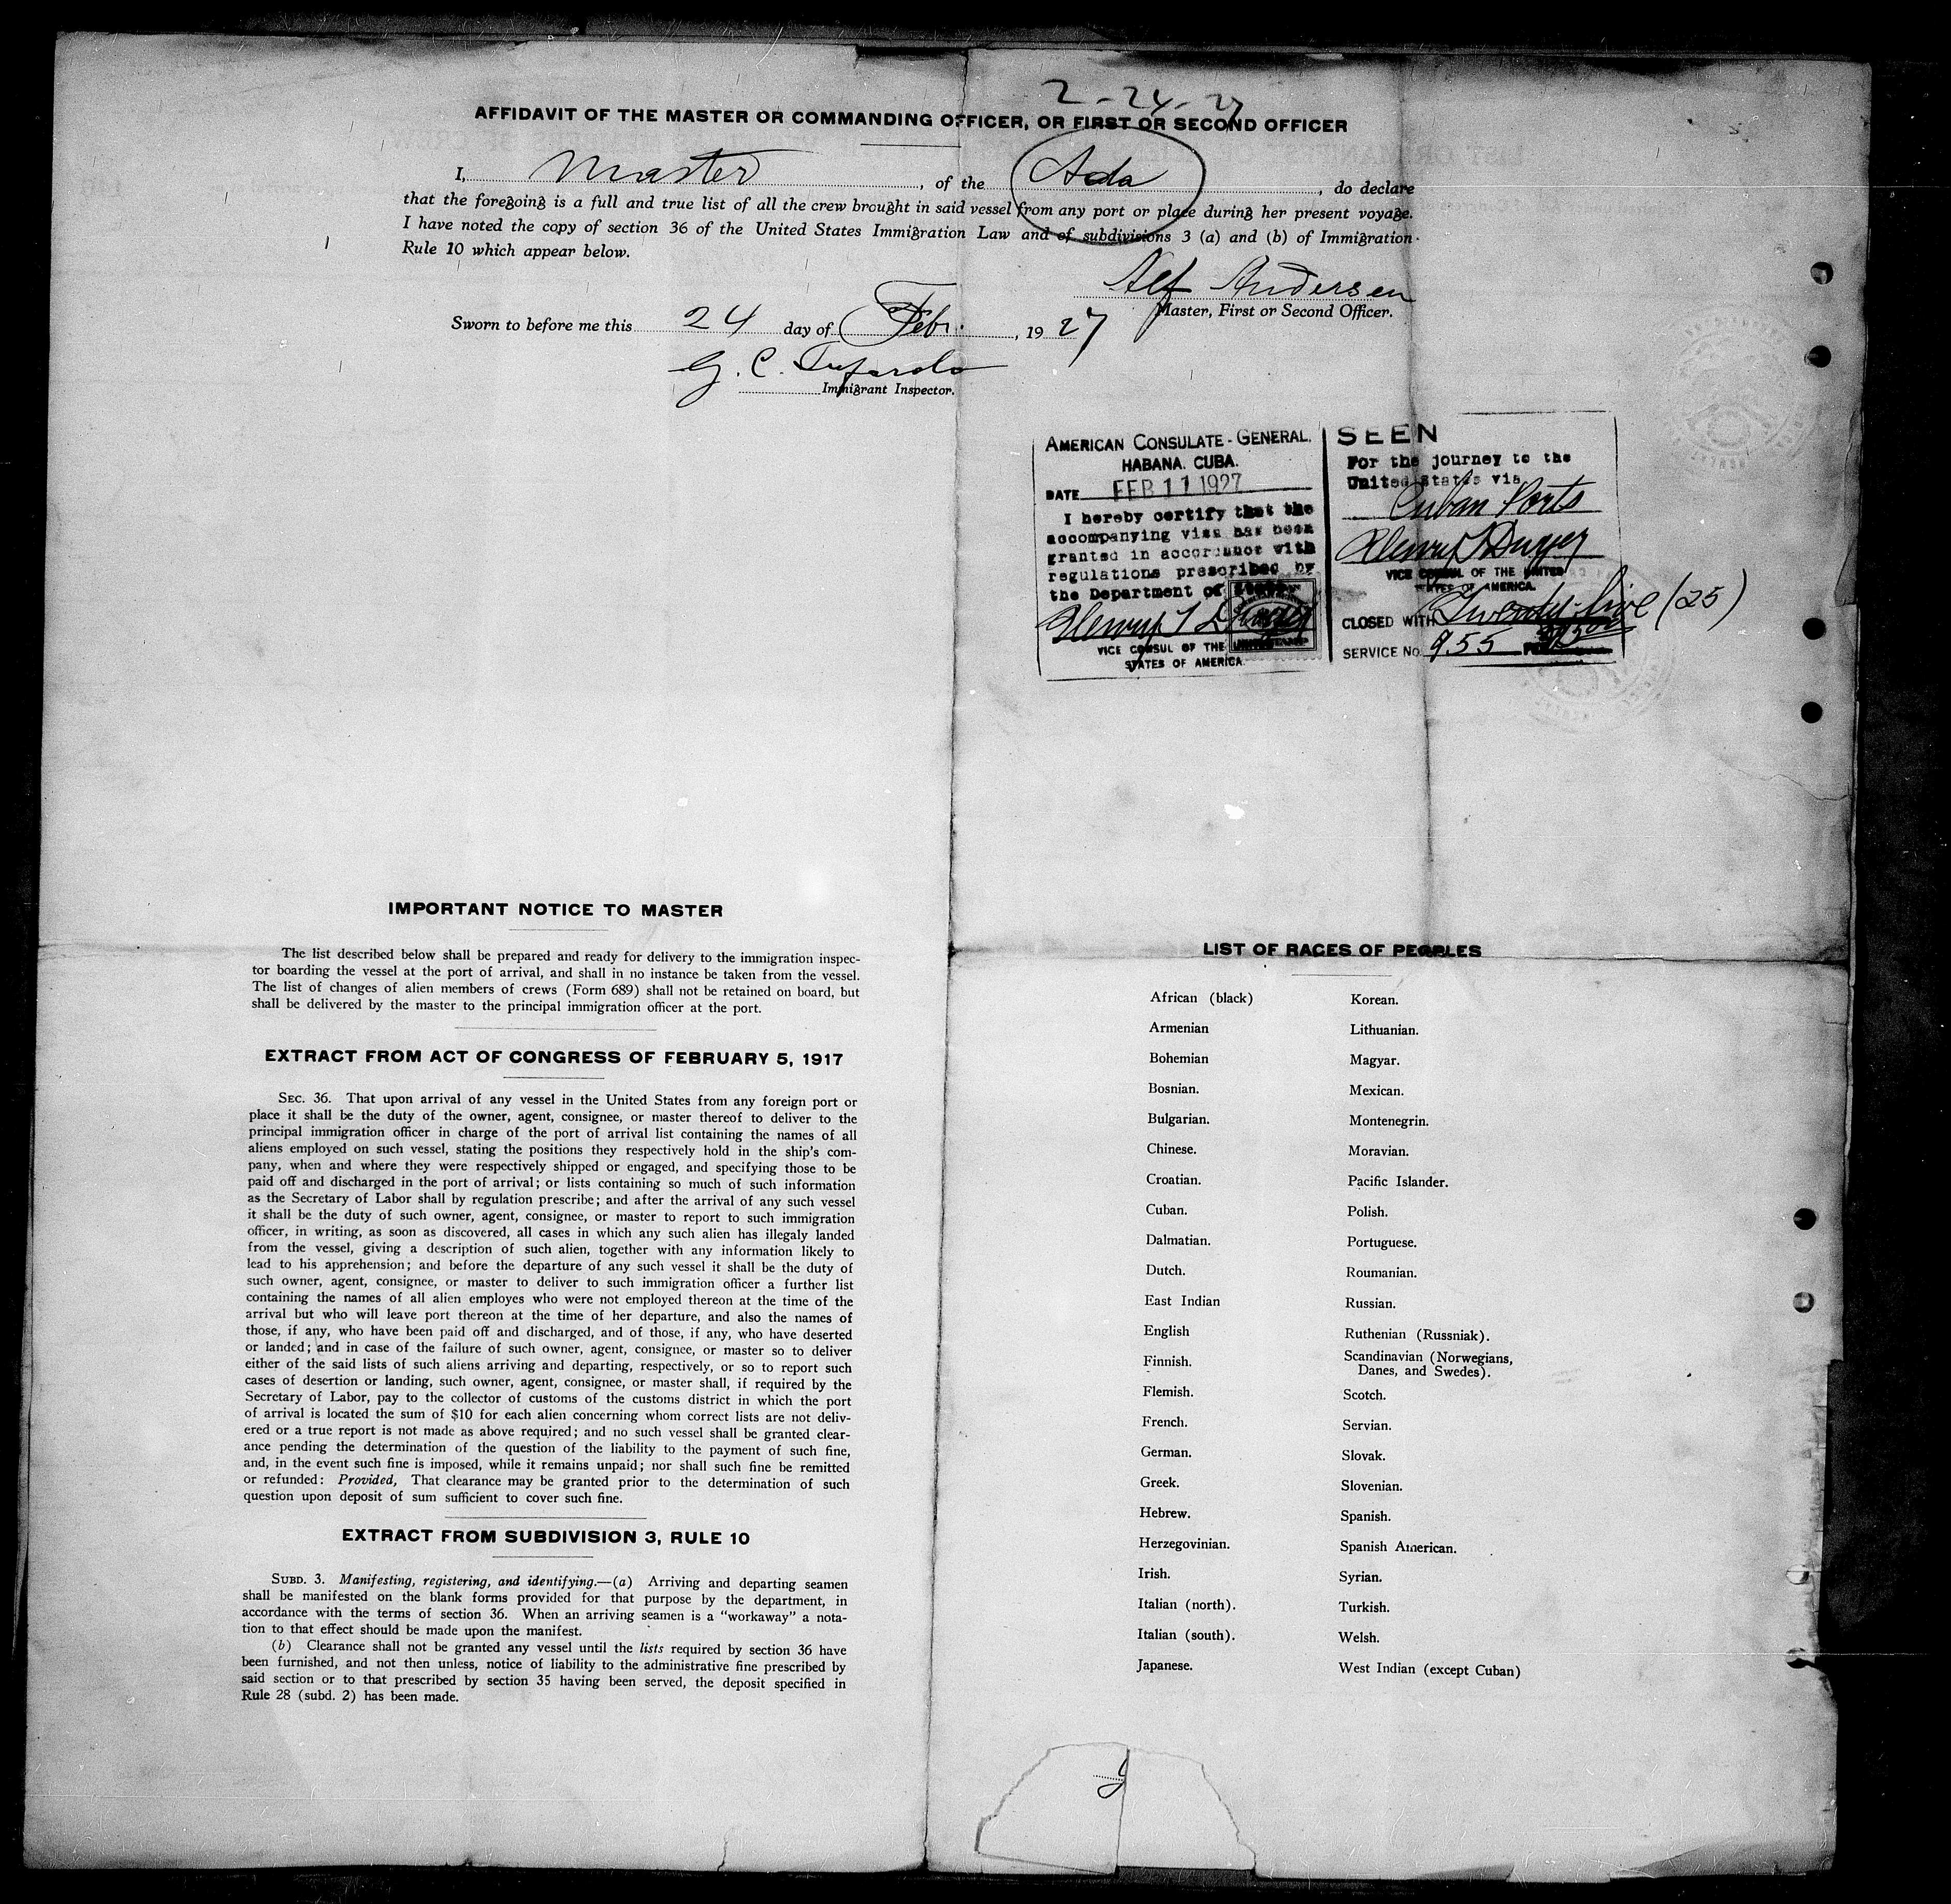 2-24-27
AFFIDAVIT OF THE MASTER OR COMMANDING OFFICER, OR FIRST OR SECOND OFFICER
I, Master, of the Ada, do declare
that the foregoing is a full and true list of all the crew brought in said vessel from any port or place during her present voyage.
I have noted the copy of section 36 of the United States Immigration Law and of subdivisions 3 (a) and (b) of Immigration
Rule 10 which appear below.
Alf Andersen
Master, First or Second Officer.
Sworn to before me this 24 day of Febr., 1927
G. C.
Immigrant Inspector.
AMERICAN CONSULATE-GENERAL.
HABANA. CUBA.
DATE FEB 11 1927
I hereby certify that the
accompanying visa has been
granted in accordance with
regulations prescribed by
the Department of State
Henry T
VICE CONSUL OF THE UNITED
STATES OF AMERICA
SEEN
For the journey to the
United States via
Cuban Ports
Henry T
VICE CONSUL OF THE UNITED
STATES OF AMERICA.
CLOSED WITH Twenty-five (25)
SERVICE No. 955
IMPORTANT NOTICE TO MASTER
The list described below shall be prepared and ready for delivery to the immigration inspec-
tor boarding the vessel at the port of arrival, and shall in no instance be taken from the vessel.
The list of changes of alien members of crews (Form 689) shall not be retained on board, but
shall be delivered by the master to the principal immigration officer at the port.
EXTRACT FROM ACT OF CONGRESS OF FEBRUARY 5, 1917
SEC. 36. That upon arrival of any vessel in the United States from any foreign port or
place it shall be the duty of the owner, agent, consignee, or master thereof to deliver to the
principal immigration officer in charge of the port of arrival list containing the names of all
aliens employed on such vessel, stating the positions they respectively hold in the ship's com-
pany, when and where they were respectively shipped or engaged, and specifying those to be
paid off and discharged in the port of arrival; or lists containing so much of such information
as the Secretary of Labor shall by regulation prescribe; and after the arrival of any such vessel
it shall be the duty of such owner, agent, consignee, or master to report to such immigration
officer, in writing, as soon as discovered, all cases in which any such alien has illegally landed
from the vessel, giving a description of such alien, together with any information likely to
lead to his apprehension; and before the departure of any such vessel it shall be the duty of
such owner, agent, consignee, or master to deliver to such immigration officer a further list
containing the names of all alien employes who were not employed thereon at the time of the
arrival but who will leave port thereon at the time of her departure, and also the names of
those, if any, who have been paid off and discharged, and of those, if any, who have deserted
or landed; and in case of the failure of such owner, agent, consignee, or master so to deliver
either of the said lists of such aliens arriving and departing, respectively, or so to report such
cases of desertion or landing, such owner, agent, consignee, or master shall, if required by the
Secretary of Labor, pay to the collector of customs of the customs district in which the port
of arrival is located the sum of $10 for each alien concerning whom correct lists are not deliv-
ered or a true report is not made as above required; and no such vessel shall be granted clear-
ance pending the determination of the question of the liability to the payment of such fine,
and, in the event such fine is imposed, while it remains unpaid; nor shall such fine be remitted
or refunded: Provided, That clearance may be granted prior to the determination of such
question upon deposit of sum sufficient to cover such fine.
EXTRACT FROM SUBDIVISION 3, RULE 10
SUBD. 3. Manifesting, registering, and identifying.—(a) Arriving and departing seamen
shall be manifested on the blank forms provided for that purpose by the department, in
accordance with the terms of section 36. When an arriving seamen is a "workaway" a nota-
tion to that effect should be made upon the manifest.
(b) Clearance shall not be granted any vessel until the lists required by section 36 have
been furnished, and not then unless, notice of liability to the administrative fine prescribed by
said section or to that prescribed by section 35 having been served, the deposit specified in
Rule 28 (subd. 2) has been made.
LIST OF RACES OF PEOPLES
African (black)
Armenian
Bohemian
Bosnian.
Bulgarian.
Chinese.
Croatian.
Cuban.
Dalmatian.
Dutch.
East Indian
English
Finnish.
Flemish.
French.
German.
Greek.
Hebrew.
Herzegovinian.
Irish.
Italian (north).
Italian (south).
Japanese.
Korean.
Lithuanian.
Magyar.
Mexican.
Montenegrin.
Moravian.
Pacific Islander.
Polish.
Portuguese.
Roumanian.
Russian.
Ruthenian (Russniak).
Scandinavian (Norwegians,
Danes, and Swedes).
Scotch.
Servian.
Slovak.
Slovenian.
Spanish.
Spanish American.
Syrian.
Turkish.
Welsh.
West Indian (except Cuban)